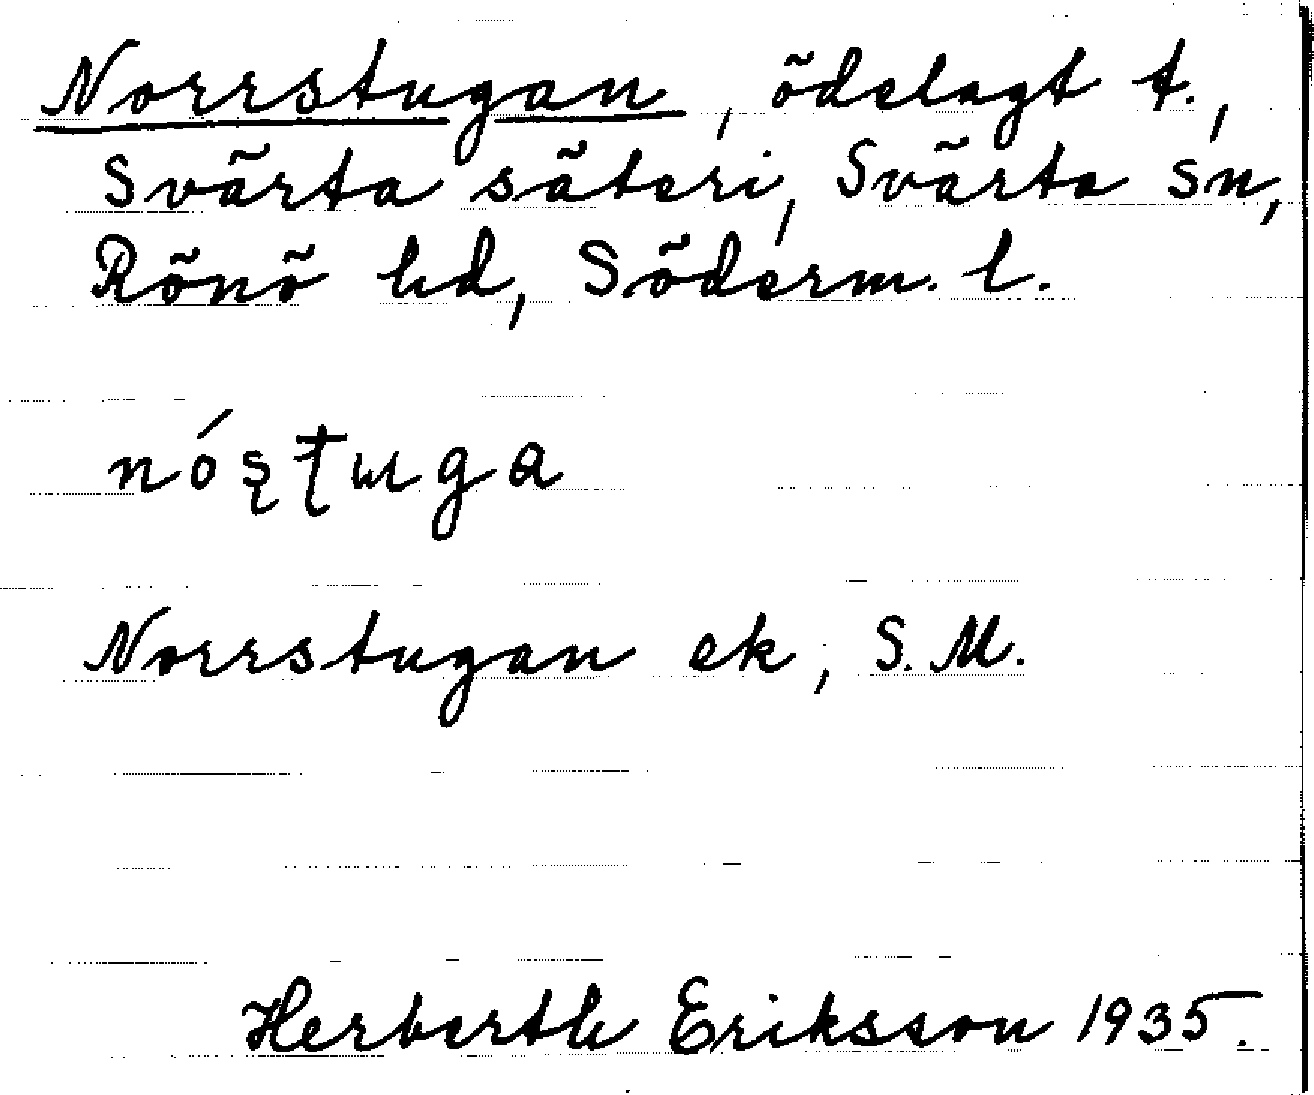 Norrstugan, ödelagt t.,
Svärta säteri, Svärta sn,
Rönö hd, Söderm. l.
nóʂʈɯga
Norrstugan ek, S.M.
Herberth Eriksson 1935.